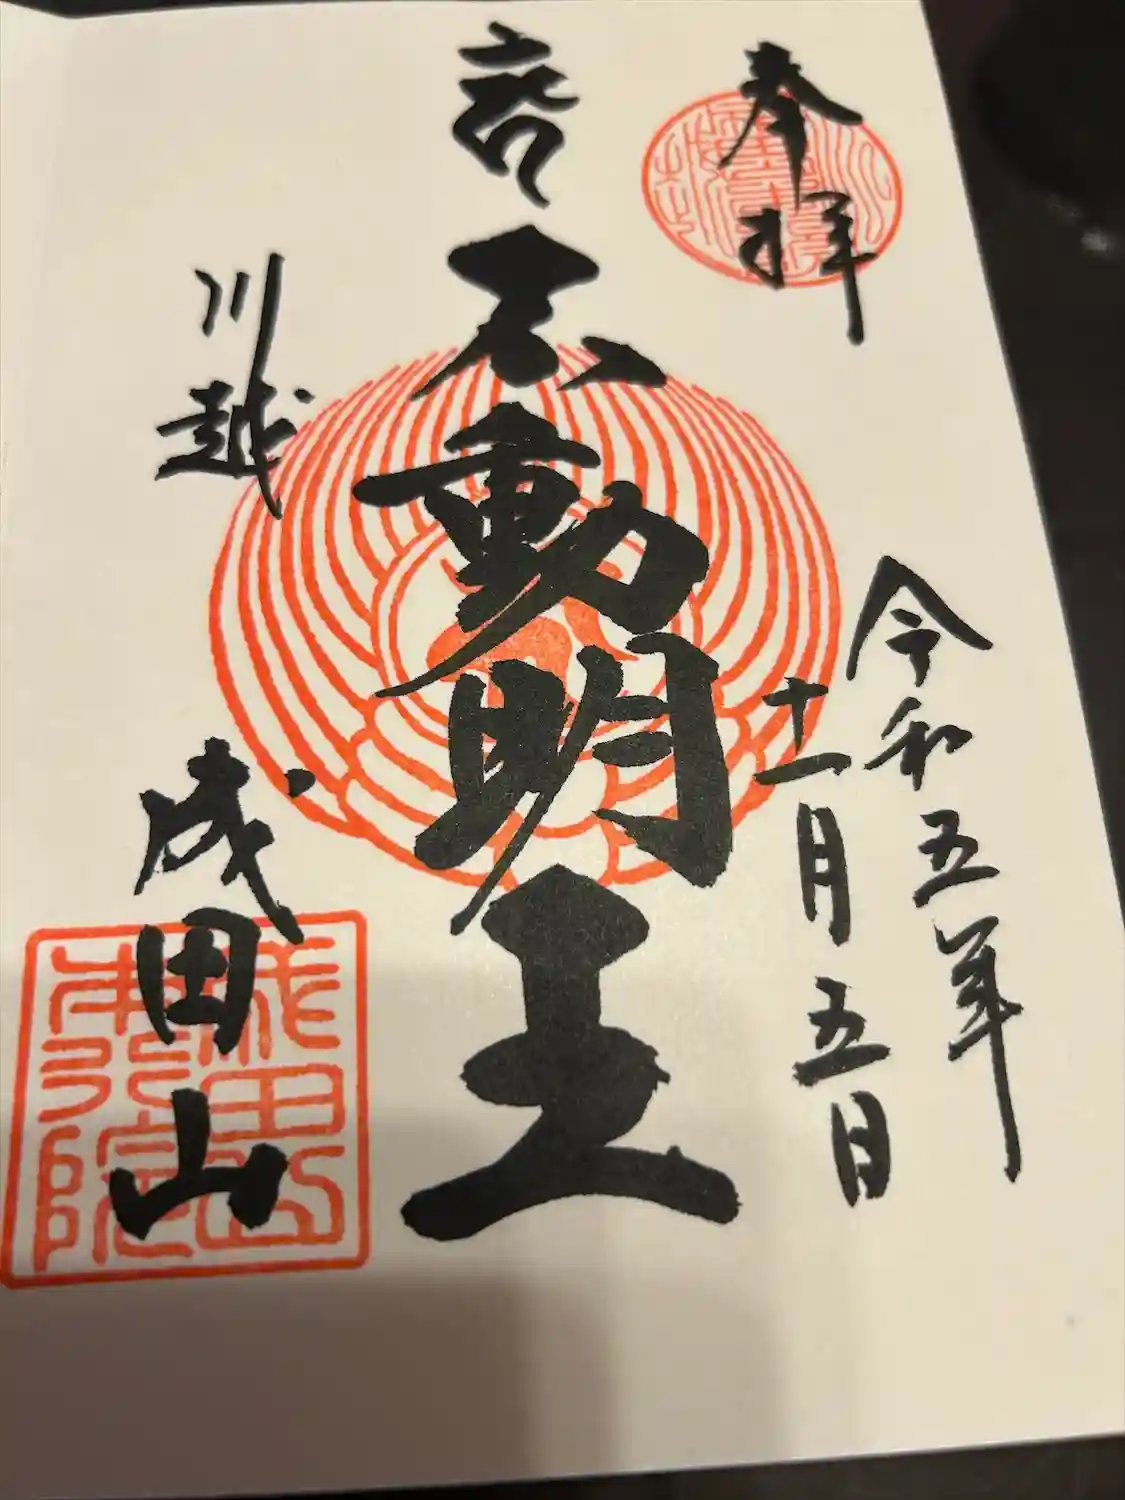 奉拝
令和五年
十一月五日
不動明王
川越
成田山
成田山
本行院